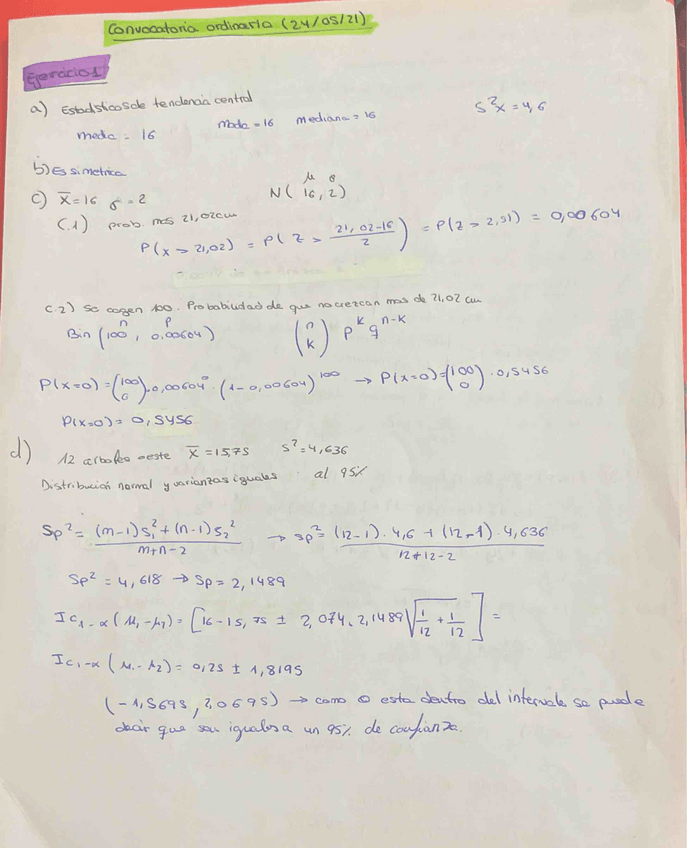 Convocatoria ordinaria (24/05/21)
Ejercicio 1
a) Estadisticos de tendencia central
media = 16 moda = 16 mediana = 16 S²x = 4,6
b) Es simetrica
c) x̄ = 16 σ = 2 N(16, 2) μ σ
C.1) prob. mas 21,02cm
P(x > 21,02) = P(Z > (21,02-16)/2) = P(Z > 2,51) = 0,00604
c.2) Se cogen 100. Probabilidad de que no crezcan mas de 21,02 cm
Bin (100, 0,00604) n p (n k) p^k q^(n-k)
P(x=0) = (100 0) · 0,00604⁰ · (1 - 0,00604)^100 → P(x=0) = (100 0) · 0,5456
P(x=0) = 0,5456
d) 12 arboles oeste x̄ = 15,75 S² = 4,636
Distribución normal y varianzas iguales al 95%
Sp² = ((m-1)S₁² + (n-1)S₂²)/(m+n-2) → Sp² = ((12-1) · 4,6 + (12-1) · 4,636)/(12+12-2)
Sp² = 4,618 → Sp = 2,1489
IC₁₋α (μ₁-μ₂) = [16-15,75 ± 2,074 · 2,1489 √(1/12 + 1/12)] =
IC₁₋α (μ₁-μ₂) = 0,25 ± 1,8195
(-1,5695, 2,0695) → como 0 esta dentro del intervalo se puede
decir que son iguales a un 95% de confianza.